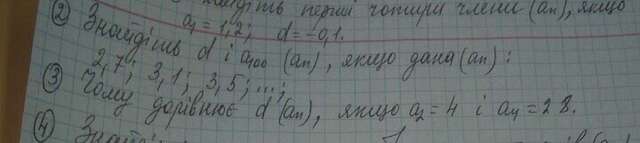 знайдіть перші чотири члени (aₙ), якщо
a₁ = 1,2; d = -0,1.
② Знайдіть d і a₁₀₀ (aₙ), якщо дана (aₙ):
2,7; 3,1; 3,5; ...;
③ Чому дорівнює d (aₙ), якщо a₂ = 4 і a₄ = 28.
④